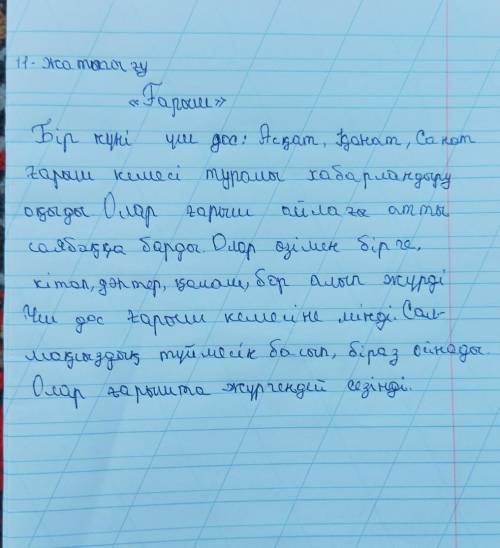 11-жаттығу
«Ғарыш»
Бір күні үш дос: Асқат, Қанат, Санат
ғарыш кемесі туралы хабарландыру
оқыды Олар ғарыш айлағы атты
саябаққа барды. Олар өзімен бірге,
кітап, дәптер, қалам, бор алып жүрді
Үш дос ғарыш кемесіне мінді. Сал-
түймесік басып, біраз ойнады.
Олар ғарышта жүргендей сезінді.